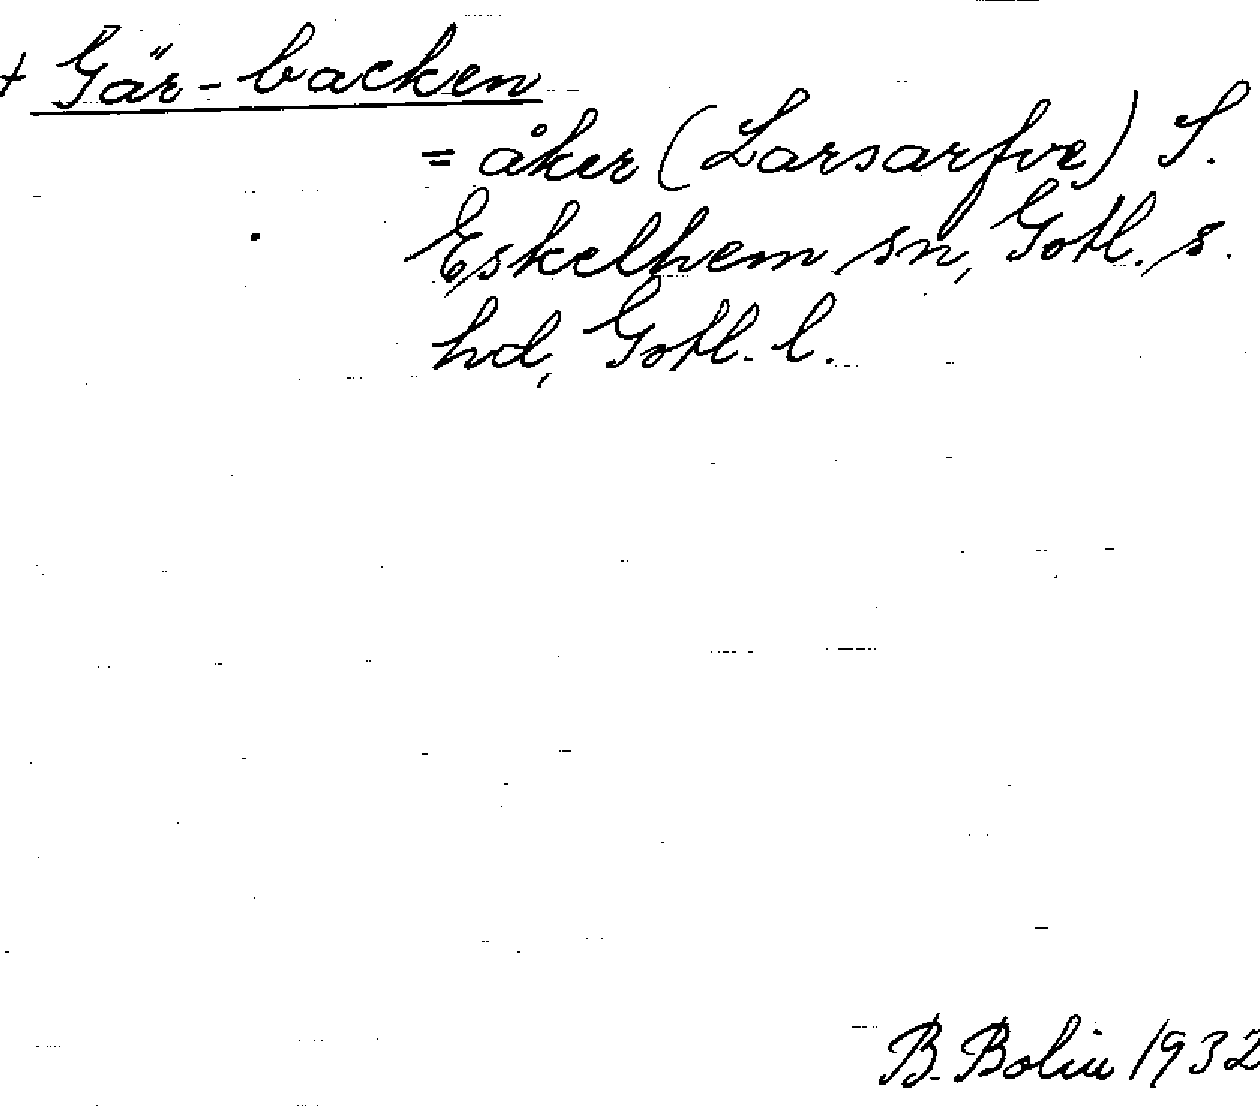 + Gär-backen
= åker (Larsarfve) S.
Eskelhem sn, Gotl. s.
hd, Gotl. l.
B. Bolin 1932